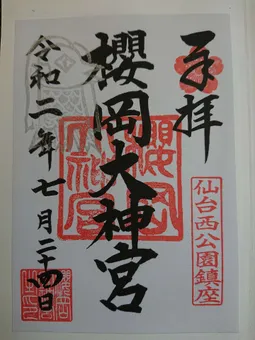 奉拝
櫻岡大神宮
櫻岡大神宮
仙台西公園鎮座
令和二年七月二十四日